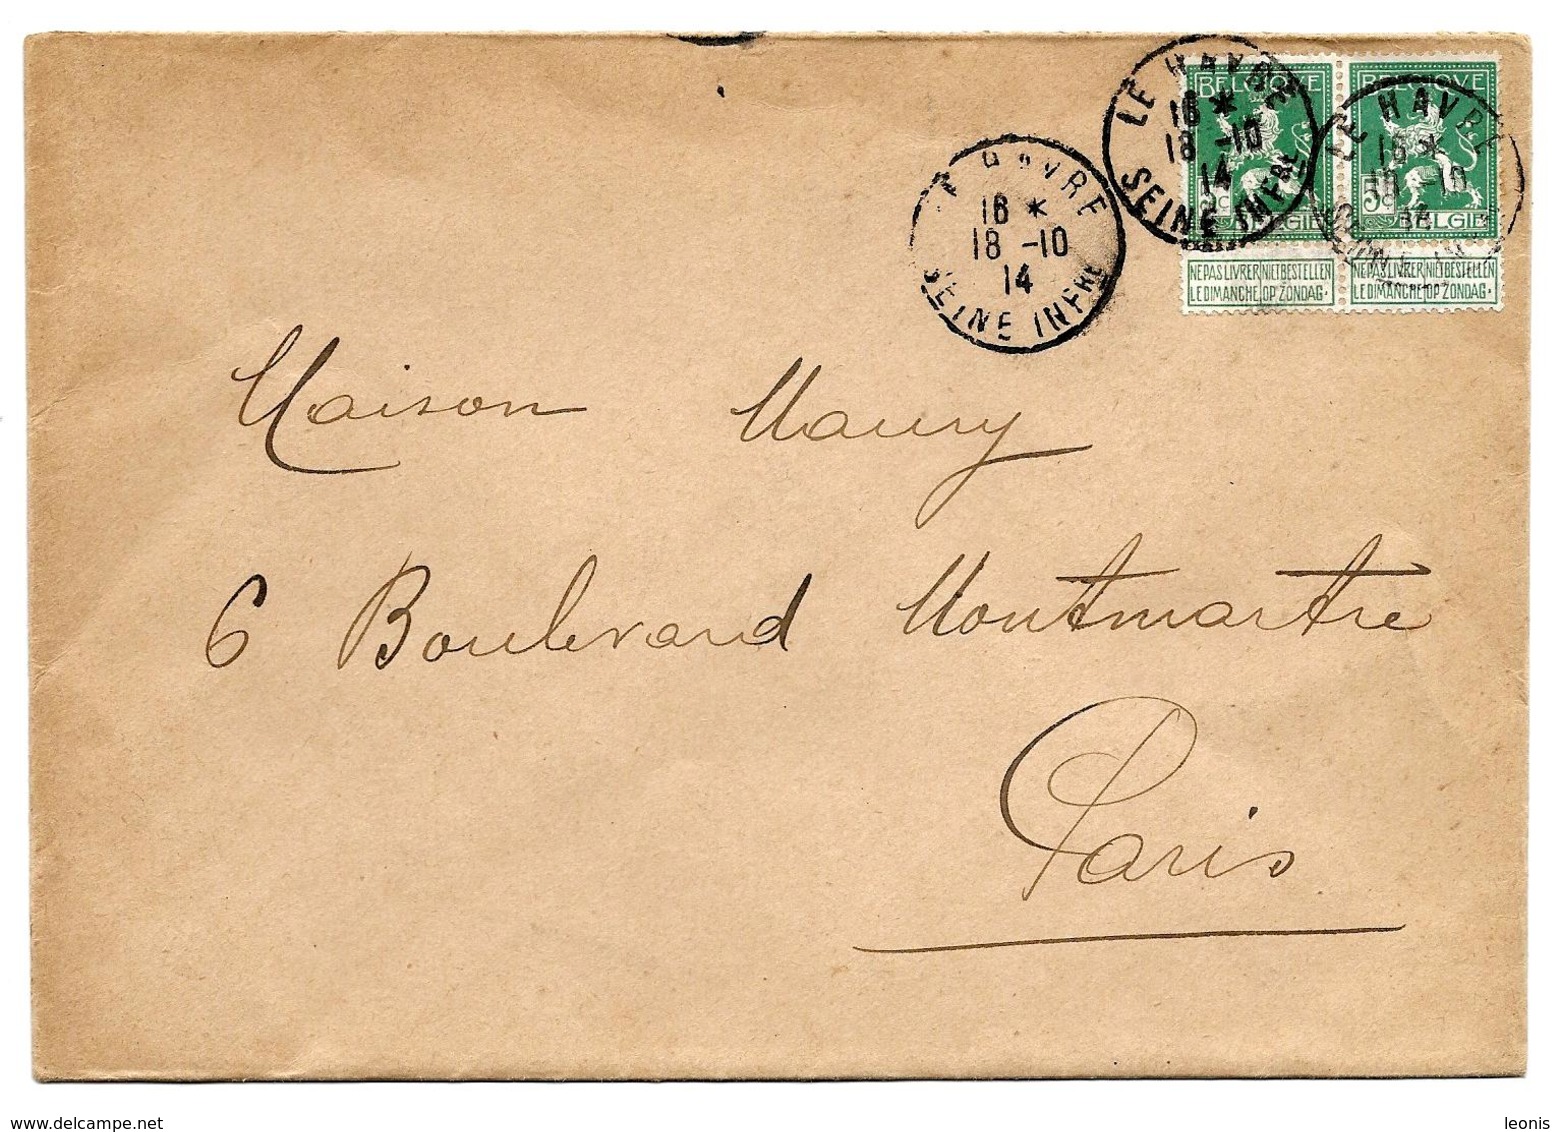 LE HAVRE
16 *
18 -10
14
SEINE INFRE
LE HAVRE
16 *
18 -10
14
SEINE INFRE
LE HAVRE
16 *
18 -10
BELGIQUE BELGIQUE
5c 5c
BELGIË BELGIË
NE PAS LIVRER NIET BESTELLEN NE PAS LIVRER NIET BESTELLEN
LE DIMANCHE OP ZONDAG. LE DIMANCHE OP ZONDAG.
Maison Maury
6 Boulevard Montmartre
Paris
www.delcampe.net
leonis